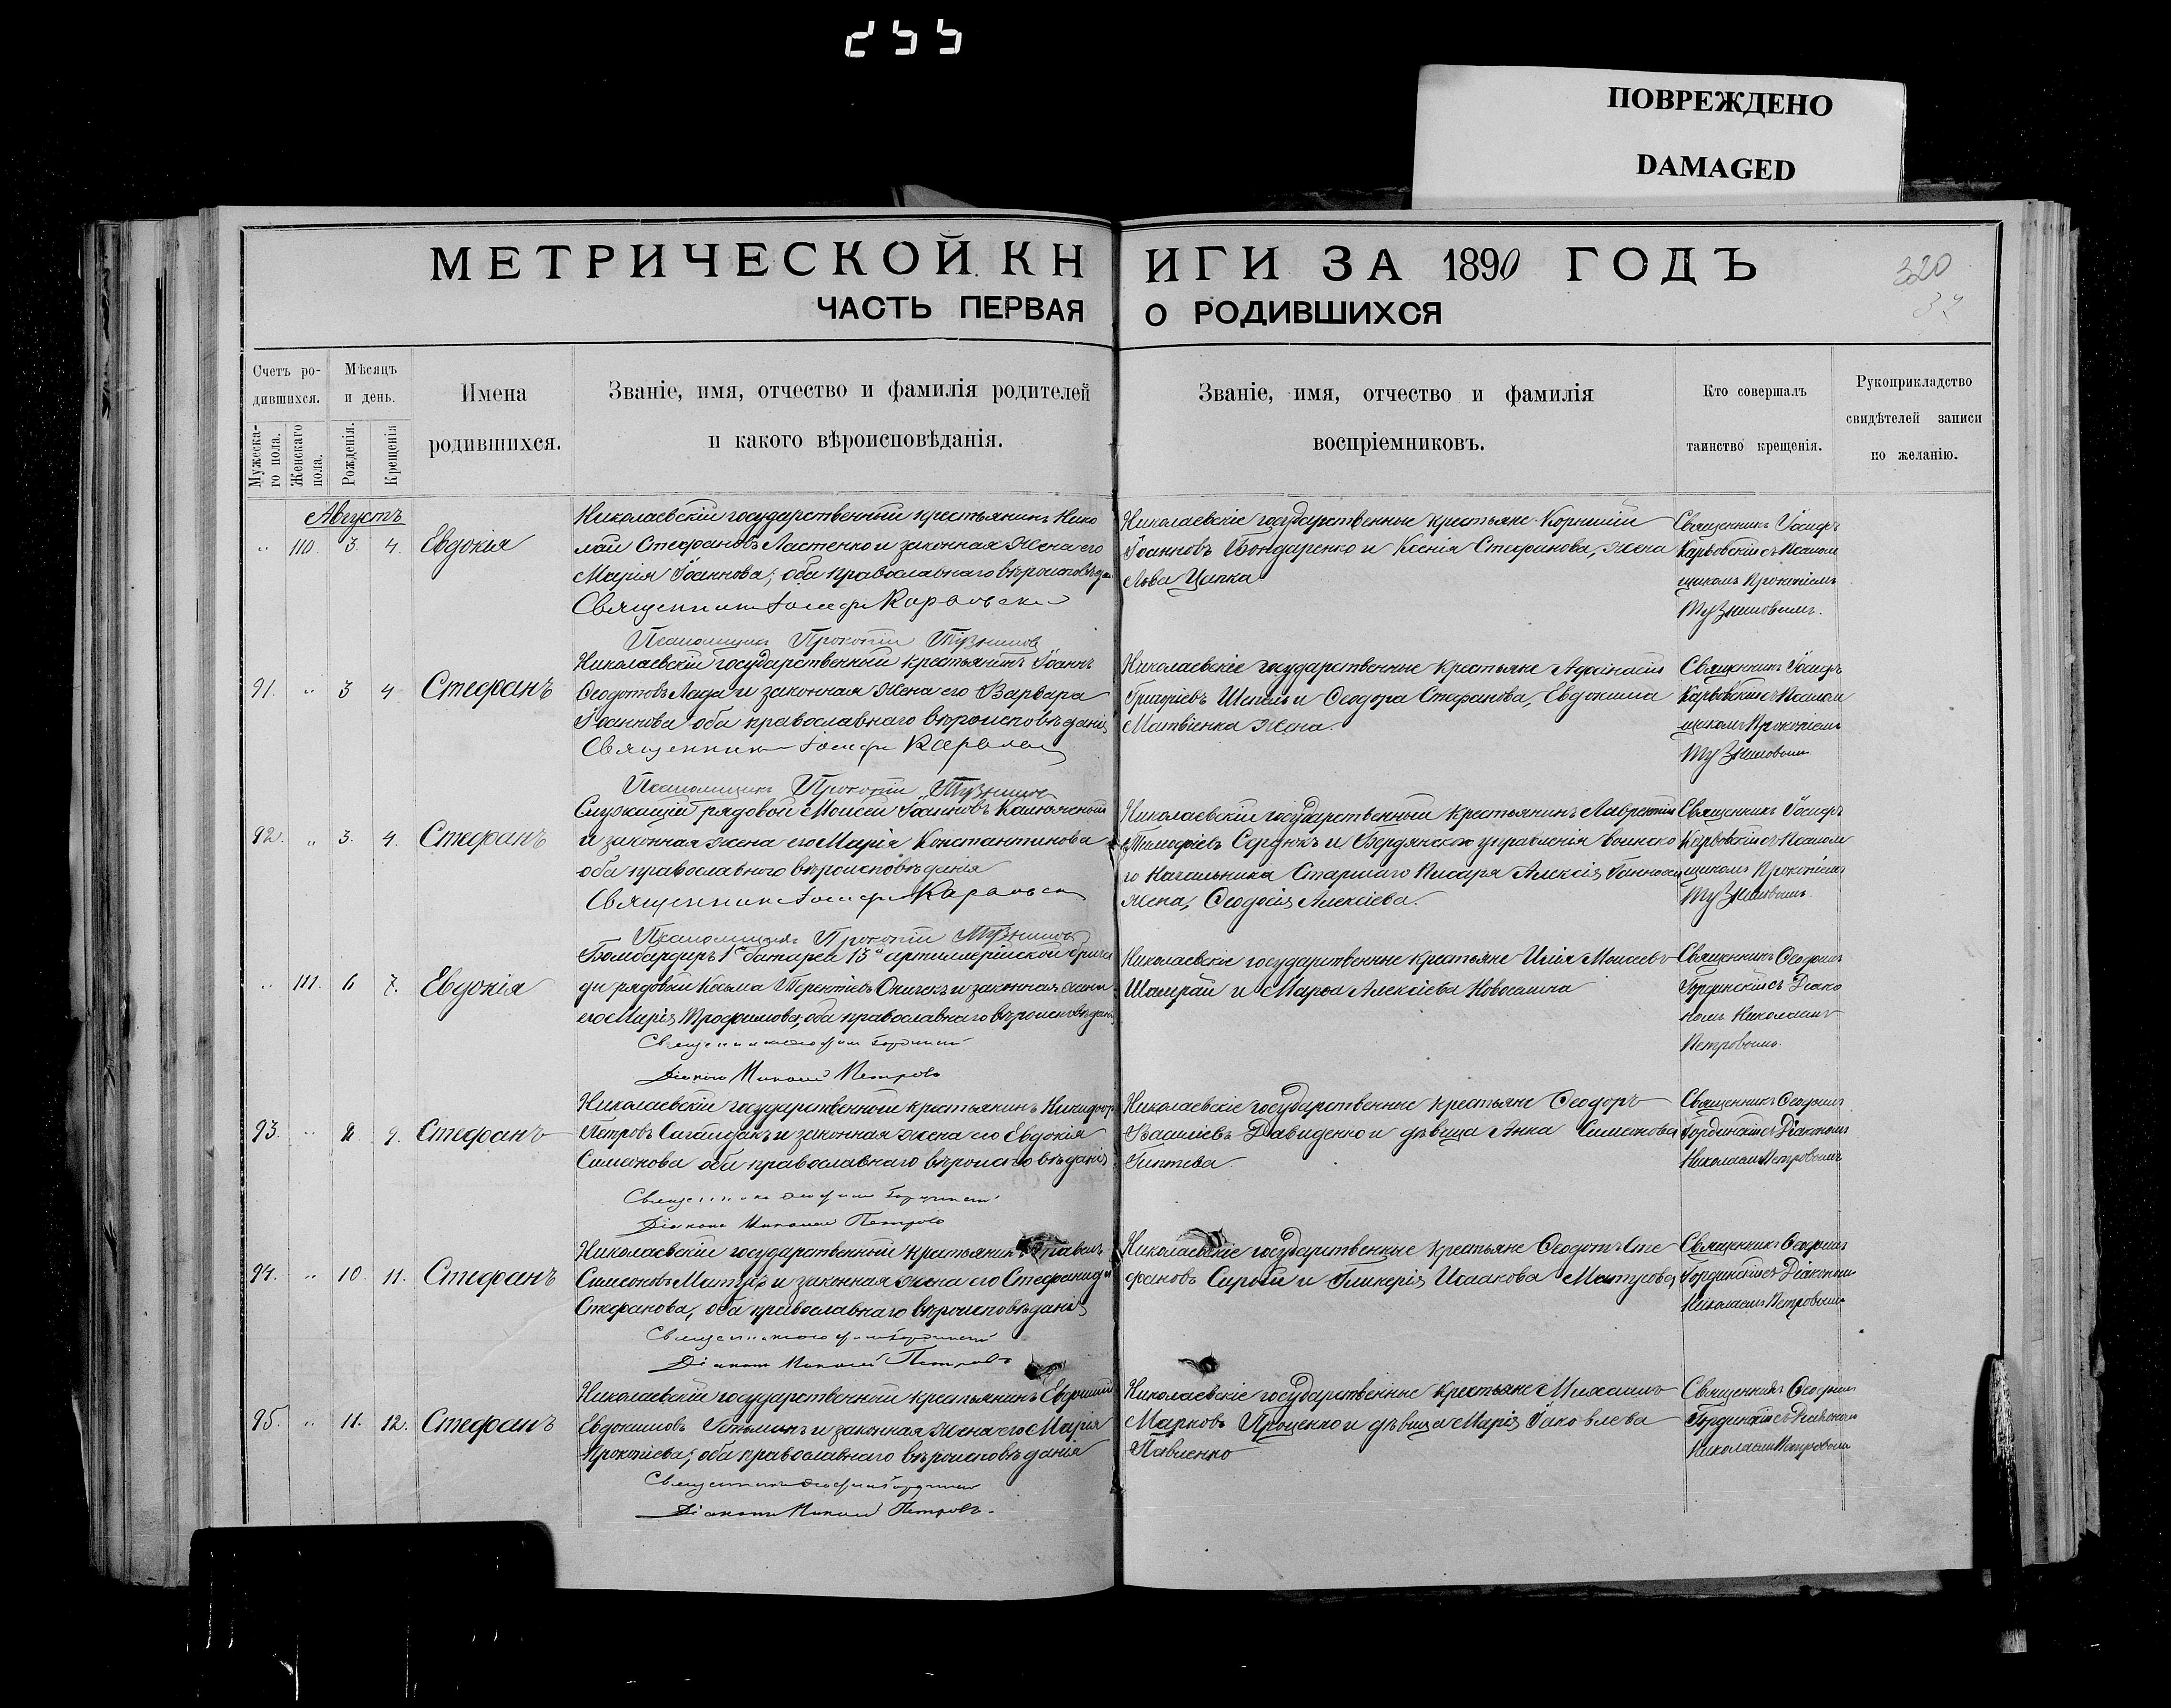 255
ПОВРЕЖДЕНО
DAMAGED
МЕТРИЧЕСКОЙ КНИГИ ЗА 1890 ГОДЪ
ЧАСТЬ ПЕРВАЯ О РОДИВШИХСЯ
320
Счетъ ро-
дившихся.
Мужеска-
го пола.
Женскаго
пола.
Мѣсяцъ
и день.
Рожденія.
Крещенія
Имена
родившихся.
Званіе, имя, отчество и фамилія родителей
и какого вѣроисповѣданія.
Званіе, имя, отчество и фамилія
воспріемниковъ.
Кто совершалъ
таинство крещенія.
Рукоприкладство
свидѣтелей записи
по желанію.
Августъ
" 110. 3. 4. Евдокія
Николаевскій государственный крестьянинъ Нико
лай Стефановъ Ластенко и законная жена его
Марія Іоаннова, оба православнаго вѣроисповѣдан
Священникъ Іосифъ Карвовскій
Псаломщикъ Прокопій
Николаевскіе государственные крестьяне Корнилій
Іоанновъ Бондаренко и Ксенія Стефанова, жена
Льва Цапка
Священникъ Іосифъ
Карвовскій съ Псалом
щикомъ Прокопіемъ
91. " 3 4 Стефанъ
Николаевскій государственный крестьянинъ Іоаннъ
Ѳеодотовъ Лада и законная жена его Варвара
Іоаннова оба православнаго вѣроисповѣданія
Священникъ Іосифъ
Псаломщикъ Прокопій
Николаевскіе государственные крестьяне Аѳанасій
Григоріевъ и Ѳеодора Стефанова, Евдокима
Матвіенка жена.
Священникъ Іосифъ
Карвовскій съ Псалом
щикомъ Прокопіемъ
92. " 3. 4. Стефанъ
Служащій рядовой Моисей Іоанновъ
и законная жена его Марія Константинова
оба православнаго вѣроисповѣданія
Священникъ Іосифъ
Псаломщикъ Прокопій
Николаевскій государственный крестьянинъ Лаврентій
Тимоѳіевъ Сердюкъ и Бердянскаго управленія воинско
го Начальника Старшаго Писаря Алексія
жена, Ѳеодосія Алексіева.
Священникъ Іосифъ
Карвовскій съ Псалом
щикомъ Прокопіемъ
" 111. 6 7. Евдокія
Бомбардиръ 1й батареи 13й артиллерійской брига
ды рядовой Косьма Терентіевъ и законная жена
его Марія Трофимова, оба православнаго вѣроисповѣдан
Священникъ
Діаконъ Николай Петровъ
Николаевскіе государственные крестьяне Илія Моисеевъ
Шамрай и Марѳа Алексіева
Священникъ Ѳеофилъ
Гординскій съ Діако
номъ Николаемъ
Петровымъ.
93. " 8. 9. Стефанъ
Николаевскій государственный крестьянинъ Никифоръ
Петровъ и законная жена его Евдокія
Симеонова оба православнаго вѣроисповѣданія
Священникъ
Діаконъ Николай Петровъ
Николаевскіе государственные крестьяне Ѳеодоръ
Василіевъ Давиденко и дѣвица Анна Симеонова
Священникъ Ѳеофилъ
Гординскій съ Діакономъ
Николаемъ Петровымъ
94. " 10. 11. Стефанъ
Николаевскій государственный крестьянинъ Павелъ
Симеоновъ и законная жена его Стефанида
Стефанова, оба православнаго вѣроисповѣданія
Священникъ
Діаконъ Николай Петровъ
Николаевскіе государственные крестьяне Ѳеодотъ Сте
фановъ Сирый и Гликерія Исаакова
Священникъ Ѳеофилъ
Гординскій съ Діакономъ
Николаемъ Петровымъ
95. " 11. 12. Стефанъ
Николаевскій государственный крестьянинъ Евфимій
Евдокимовъ и законная жена его Марія
Прокопіева, оба православнаго вѣроисповѣданія
Священникъ
Діаконъ Николай Петровъ.
Николаевскіе государственные крестьяне Михаилъ
Марковъ Проценко и дѣвица Марія Іаковлева
Павленко
Священникъ Ѳеофилъ
Гординскій съ Діакономъ
Николаемъ Петровымъ